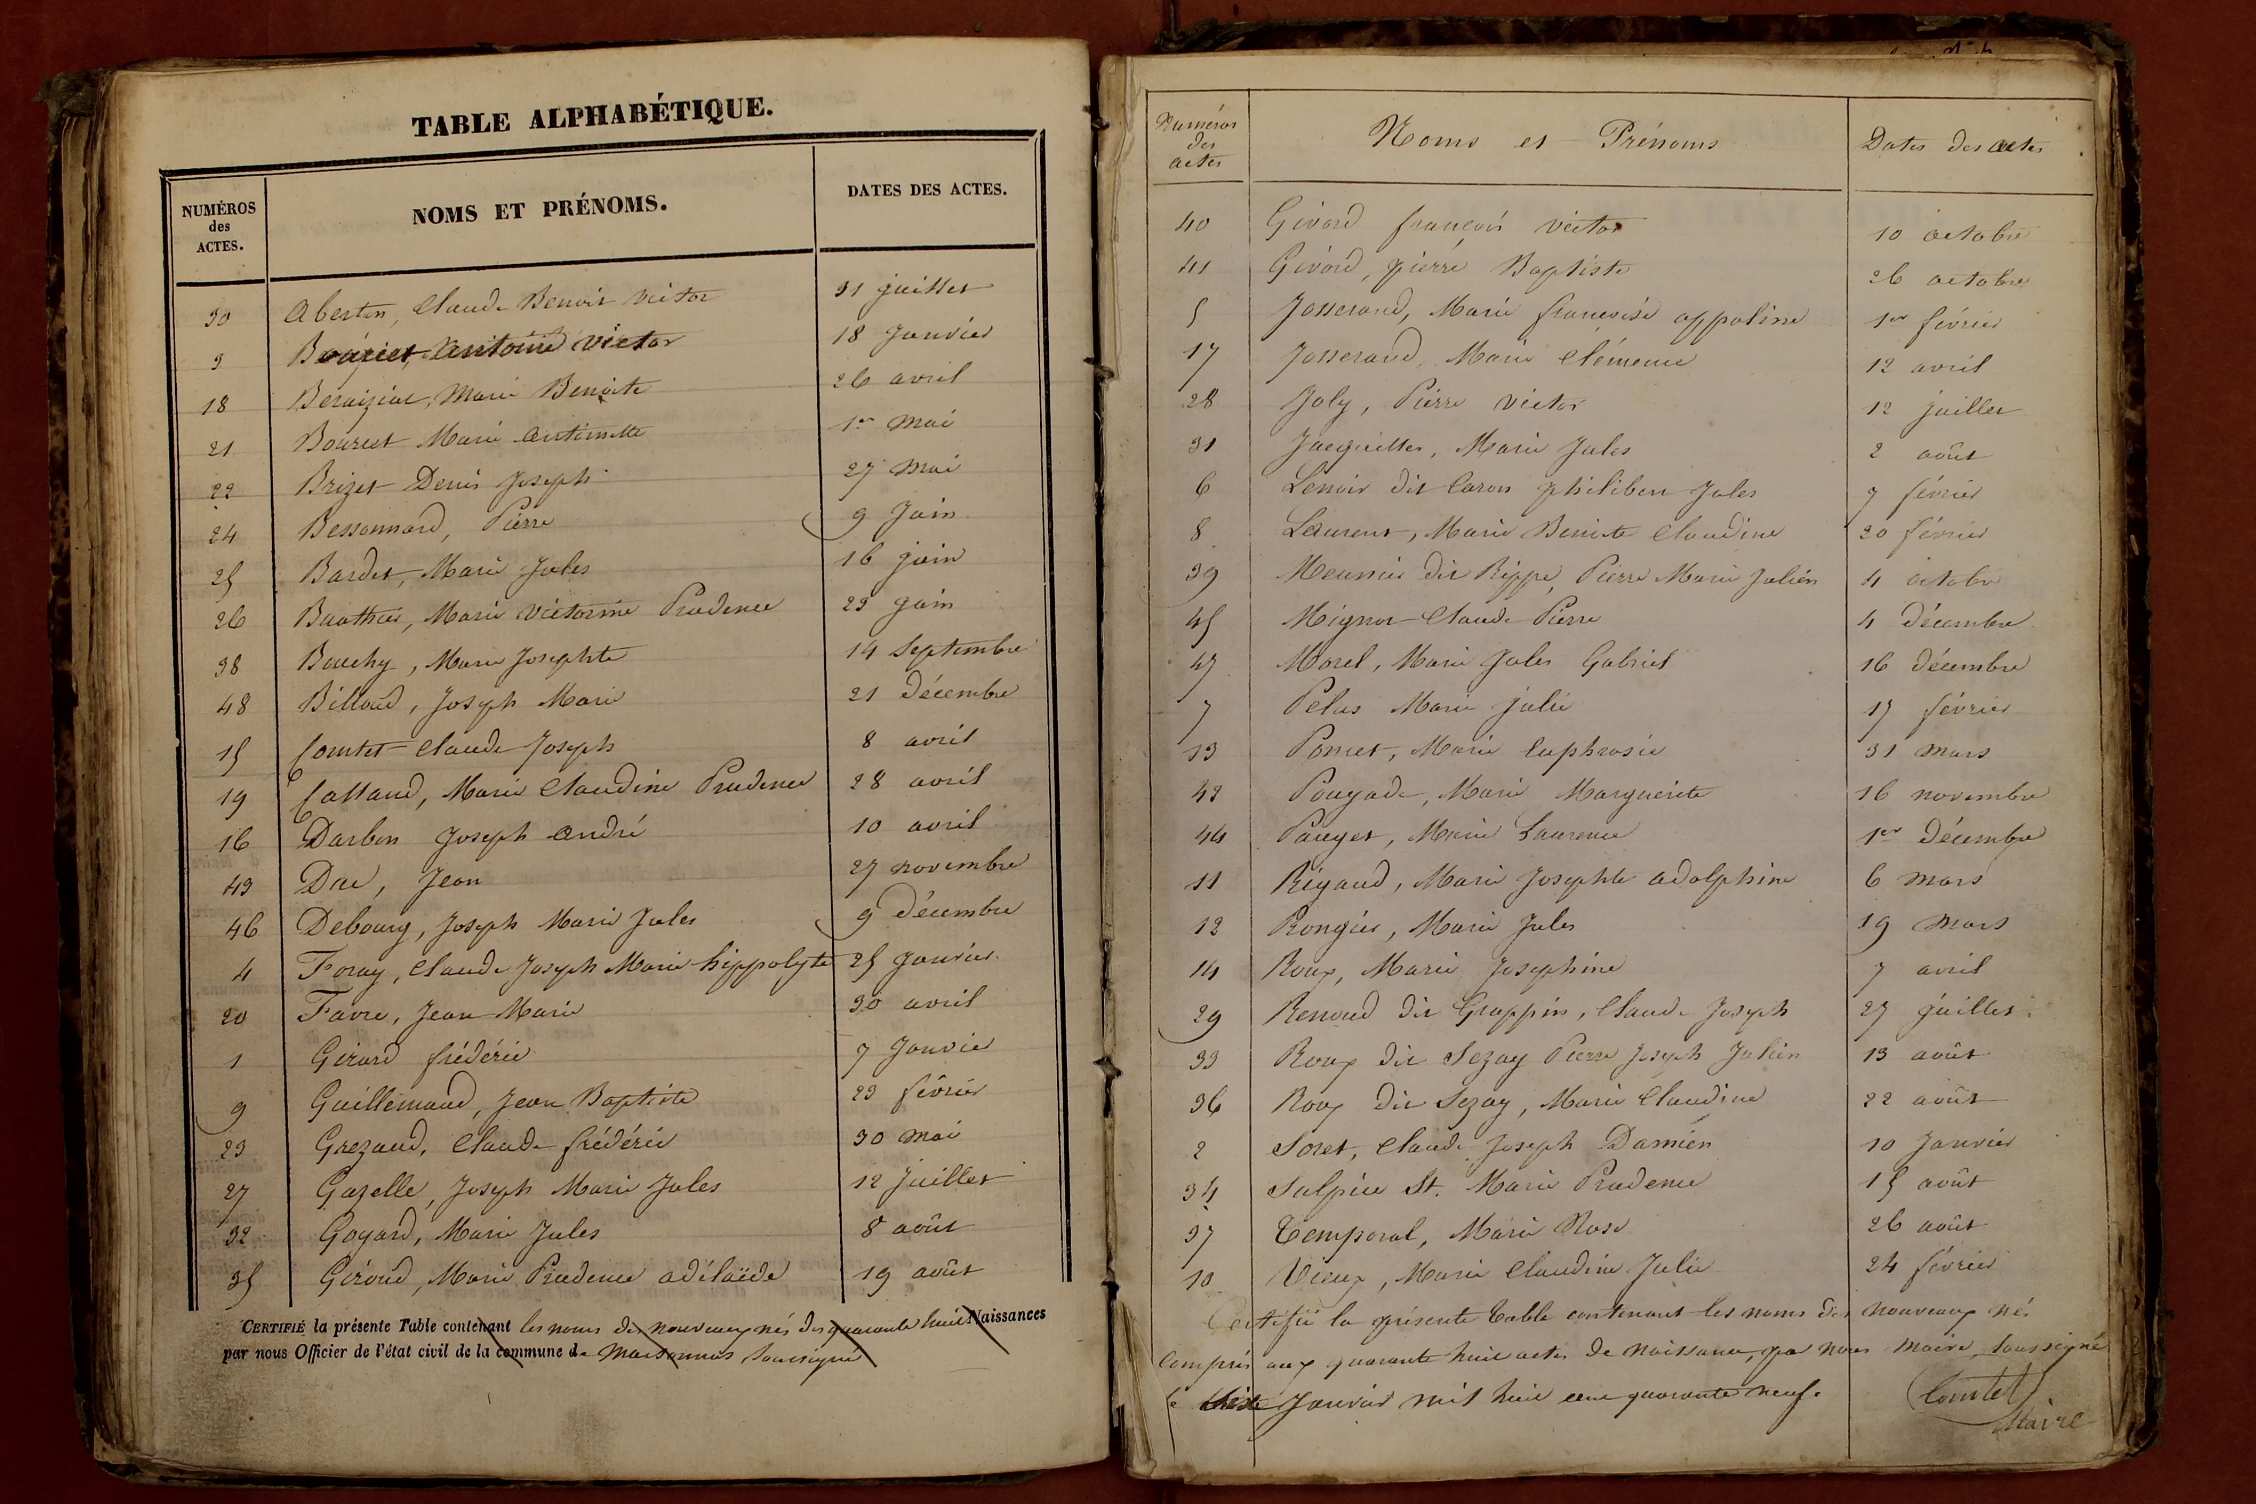 TABLE ALPHABÉTIQUE.
NUMÉROS des ACTES. NOMS ET PRÉNOMS. DATES DES ACTES.
30 Abertin, Claude Benoit Victor 31 juillet
3 Antoine Victor 18 Janvier
18 Beraiziat, Marie Benoite 26 avril
21 Bourcet Marie antoinette 1er mai
22 Brizet Denis Joseph 27 mai
24 Bessonnard, Pierre 9 Juin
25 Bardet, Marie Jules 16 juin
26 Buathier, Marie Victorine Prudence 23 Juin
38 Bouchy, Marie Josephte 14 Septembre
48 Billoud, Joseph Marie 21 décembre
15 Comtet Claude Joseph 8 avril
19 Cattaud, Marie Claudine Prudence 28 avril
16 Darbon Joseph André 10 avril
43 Duc, Jean 27 novembre
46 Debourg, Joseph Marie Jules 9 décembre
4 Foray, Claude Joseph Marie hippolyte 25 Janvier
20 Favre, Jean Marie 30 avril
1 Girard frédéric 7 Janvier
9 Guillemaud, Jean Baptiste 23 février
23 Grezaud, Claude frédéric 30 mai
27 Gazelle, Joseph Marie Jules 12 Juillet
32 Goyard, Marie Jules 8 août
35 Giroud, Marie Prudence adélaïde 19 août
CERTIFIÉ la présente Table contenant les noms des nouveaux nés des quarante huit Naissances
par nous Officier de l'état civil de la commune de soussigné
Numéros des actes Noms et Prénoms Dates des actes
40 Givord françois victor 10 octobre
41 Givord, pierre Baptiste 26 octobre
5 Josserand, Marie françoise appoline 1er février
17 Josserand, Marie Clémence 12 avril
28 Joly, Pierre victor 12 juillet
31 Marie Jules 2 août
6 Lenoir dit Caron philibert Jules 7 février
8 Laurent, Marie Benoite Claudine 20 février
39 Meunier dit Rippe, Pierre Marie Julien 4 octobre
45 Mignot Claude Pierre 4 décembre
47 Morel, Marie Jules Gabriel 16 décembre
7 Pelus Marie Julie 17 février
13 Poncet, Marie Euphrosie 31 mars
42 Pougade, Marie Marguerite 16 novembre
44 Pauget, Marie Laurence 1er décembre
11 Rigaud, Marie Josephte adolphine 6 mars
12 Rongier, Marie Jules 19 mars
14 Roux, Marie Josephine 7 avril
29 Renoud dit Grappin, Claude Joseph 27 juillet
33 Roux dit Sezay Pierre Joseph Julien 13 août
36 Roux dit Sezay, Marie Claudine 22 août
2 Soret, Claude Joseph Damien 10 Janvier
34 Sulpice St. Marie Prudence 15 août
37 Temporal, Marie Rose 26 août
10 Vieux, Marie Claudine Julie 24 février
Certifié la présente table contenant les noms des nouveaux nés
compris aux quarante huit actes de naissance, par nous maire, soussigné
le Janvier mil huit cent quarante neuf.
Comtet
Maire